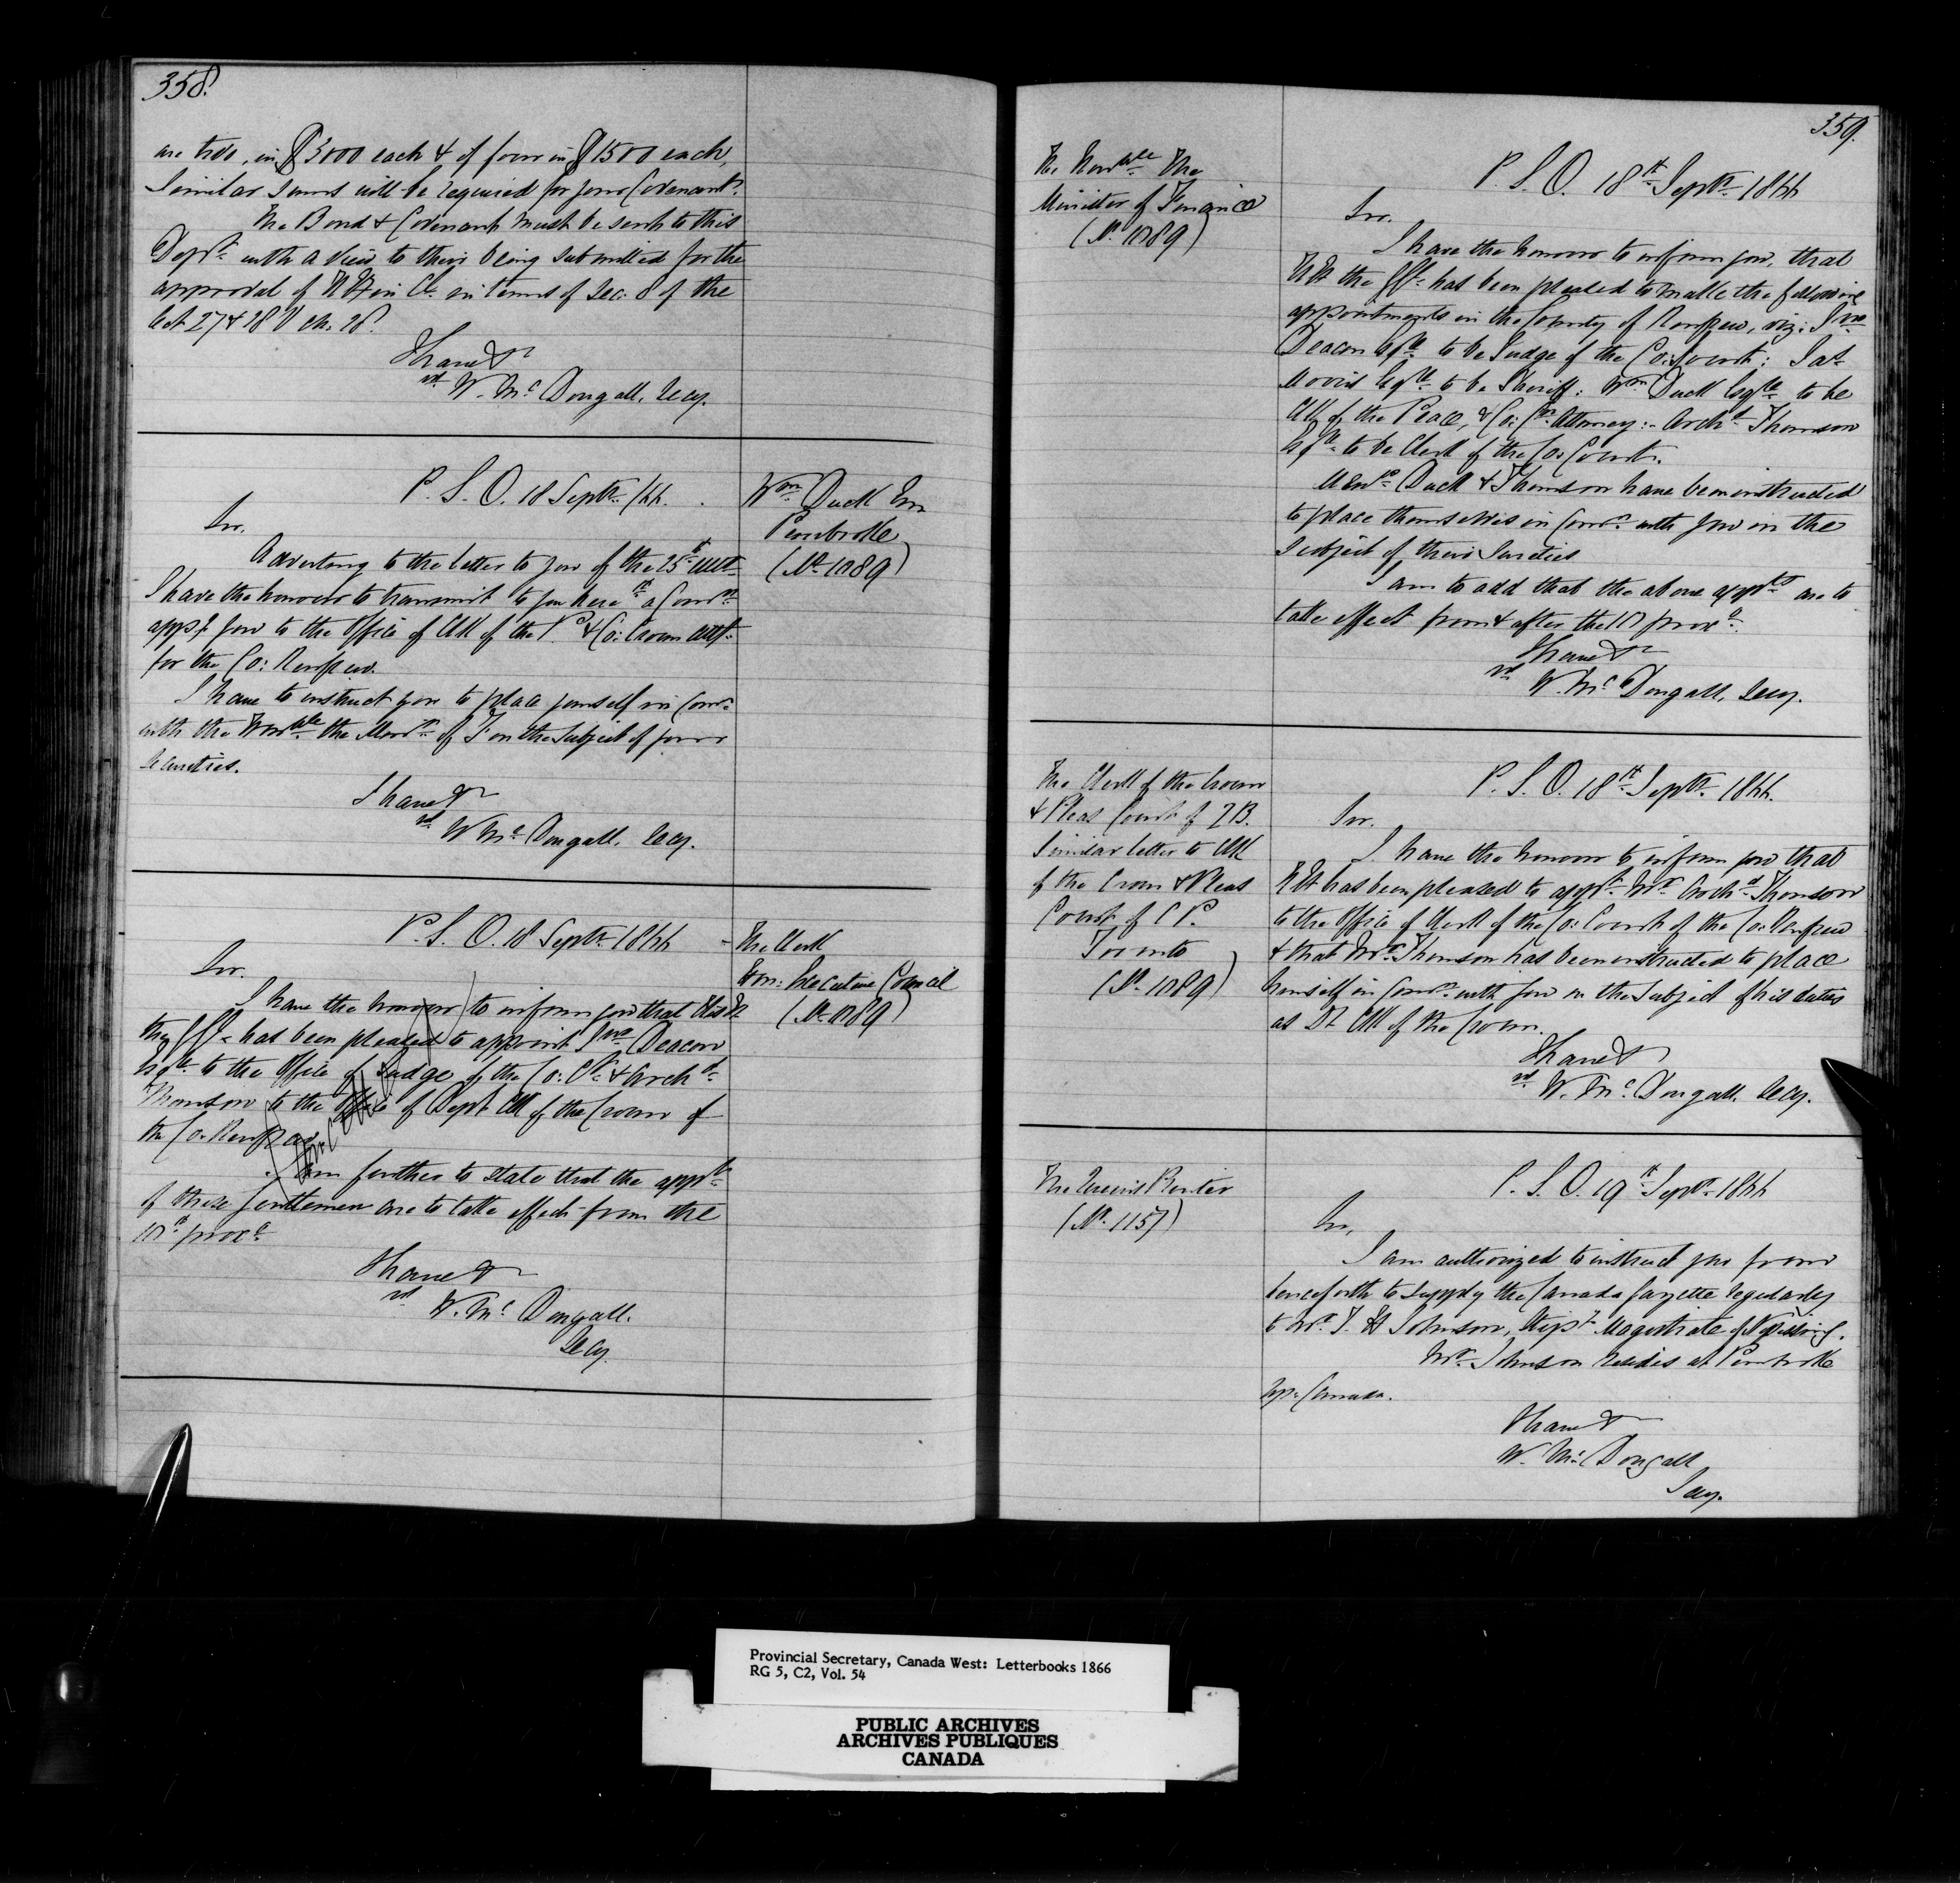 358.
are two, in $3000 each & of four in $1500 each,
Similar sums will be required for your Covenant.
The Bond & Covenant must be sent to this
Dept. with a view to their being submitted for the
approval of H E in Cl. in terms of Sec: 8 of the
Act 27 & 28 V ch. 28.
I have &c
sd W. McDougall, Secy.
P. S. O. 18 Septr. /66.
Wm Duck Esq
Pembroke
(No. 1089)
Sir.
Adverting to the letter to you of the 25th ult.
I have the honour to transmit to you here wth a Comn.
appg you to the Office of Clk of the P & Co: Crown Atty.
for the Co: Renfrew.
I have to instruct you to place yourself in Comn.
with the Honble the Minr. of F on the subject of your
Securities.
I have &c
sd W McDougall, Secy.
P. S. O. 18 Septr. 1866
The Clerk
Hon: Executive Council
(No. 1089)
Sir.
I have the honour to inform you that His E
the G G has been pleased to appoint Jno Deacon
Esqre to the Office of Judge of the Co: Ct. & Archd.
Thomson to the Office of Depy Clk of the Crown of
the Co: Renfrew.
Cancelled
I am further to state that the appts
of these gentlemen are to take effect from the
10th proxo
I have &c
sd W. McDougall.
Secy.
359.
The Honble The
Minister of Finance
(No. 1089)
P. S. O. 18th Septr. 1866
Sir.
I have the honour to inform you, that
H E the G G has been pleased to make the following
appointments in the County of Renfrew, viz: Jno
Deacon Esqre to be Judge of the Co: Court; Jas
Morris Esqre to be Sheriff: Wm Duck Esqre to be
Clk of the Peace, & Co: Cn Attorney:- Archd Thomson
Esqre to be Clerk of the Co: Court.
Messrs Duck & Thomson have been instructed
to place themselves in Comn. with you on the
subject of their Sureties
I am to add that the above appts are to
take effect from & after the 10 proxo.
I have &c
sd W. McDougall, Secy.
The Clerk of the Crown
& Pleas Court of Q B.
Similar letter to Clk
of the Crown & Pleas
Court of C P.
Toronto
(No. 1089)
P. S. O. 18th Septr. 1866.
Sir.
I have the honour to inform you that
H E has been pleased to appt Mr Archd Thomson
to the Office of Clerk of the Co: Court of the Co: Renfrew
& that Mr. Thomson has been instructed to place
himself in Comn. with you on the subject of his duties
as Dt Clk of the Crown.
I have &c
sd W. McDougall, Secy.
The Queen's Printer
(No. 1157)
P. S. O. 19th Septr. 1866
Sir,
I am authorized to instruct you from
henceforth to supply the Canada Gazette regularly
to Mr. J. H Johnson, Stipy Magistrate of Nipissing.
Mr. Johnson resides at Pembroke
Upr Canada.
I have &c
W. McDougall
Secy.
Provincial Secretary, Canada West: Letterbooks 1866
RG 5, C2, Vol. 54
PUBLIC ARCHIVES
ARCHIVES PUBLIQUES
CANADA